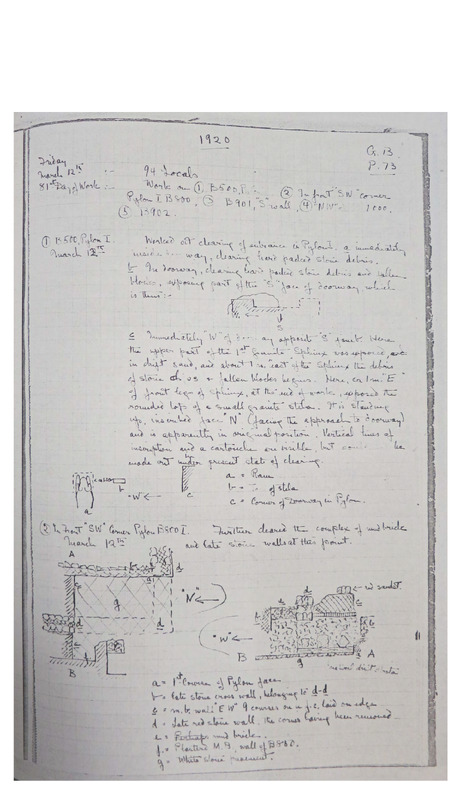 1920
G. 13
P. 73
Friday
March 12th
81st Day of Work
94 Locals
Work on ① B500, I. ② In front "SW" corner
Pylon I. B500, ③ B901, "S" wall, ④ "NW" 1000,
⑤ B902.
① B500, Pylon I.
March 12th
Worked on clearing of entrance in Pylon I. a immediately
way, clearing hard packed stone debris.
b In doorway, clearing hard packed stone debris and fallen
blocks, exposing part of the "S" face of doorway which
is thus:-
S
c Immediately "W" of opposite "S" Here
the upper part of the 1st Granite Sphinx was exposed,
in drift sand, and about 1 m. east of the Sphinx the debris
of stone + fallen blocks begins. Here, "E"
of front legs of sphinx, at the end of work, exposed the
rounded top of a small granite stela. It is standing
up, inscribed face "N" (facing the approach to doorway)
and is apparently in original position. Vertical lines of
inscription and a cartouche are visible, but be
made out in present state of clearing.
a
b
c
"W"
a = Ram
b = of stela
c = Corner of doorway in Pylon.
② In front "SW" Corner Pylon B500 I.
March 12th
Further cleared the complex of mud brick
and late stone walls at this point.
A
d
a
g
d
B
"N"
"W"
B
g
A
a = 1st Course of Pylon face
b = late stone cross wall, belonging to d-d
c = m.b. wall "EW" 9 courses laid on edge
d = late red stone wall, the corner having been removed
e = Perhaps mud brick.
f = Plastered M.B. wall of B500.
g = White stone pavement.